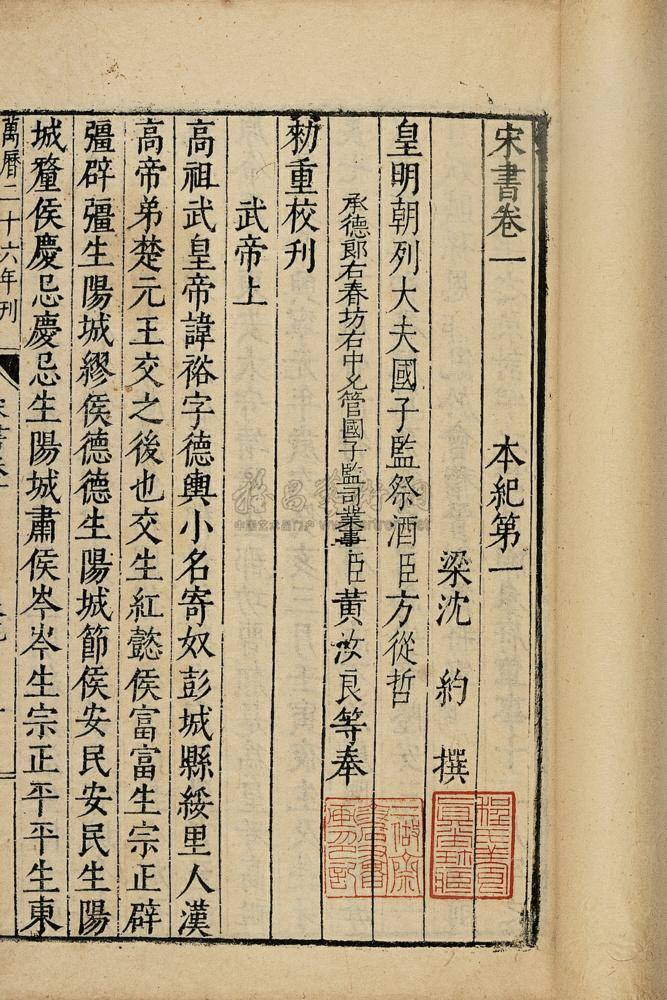 宋書卷一 本紀第一
梁沈約撰
皇明朝列大夫國子監祭酒臣方從哲
承德郎右春坊右中允管國子監司業事臣黄汝良等奉
勑重校刊
武帝上
高祖武皇帝諱裕字德輿小名寄奴彭城縣綏里人漢
高帝弟楚元王交之後也交生紅懿侯富富生宗正辟
彊辟彊生陽城繆侯德德生陽城節侯安民安民生陽
城釐侯慶忌慶忌生陽城肅侯岑岑生宗正平平生東
萬曆二十六年刊